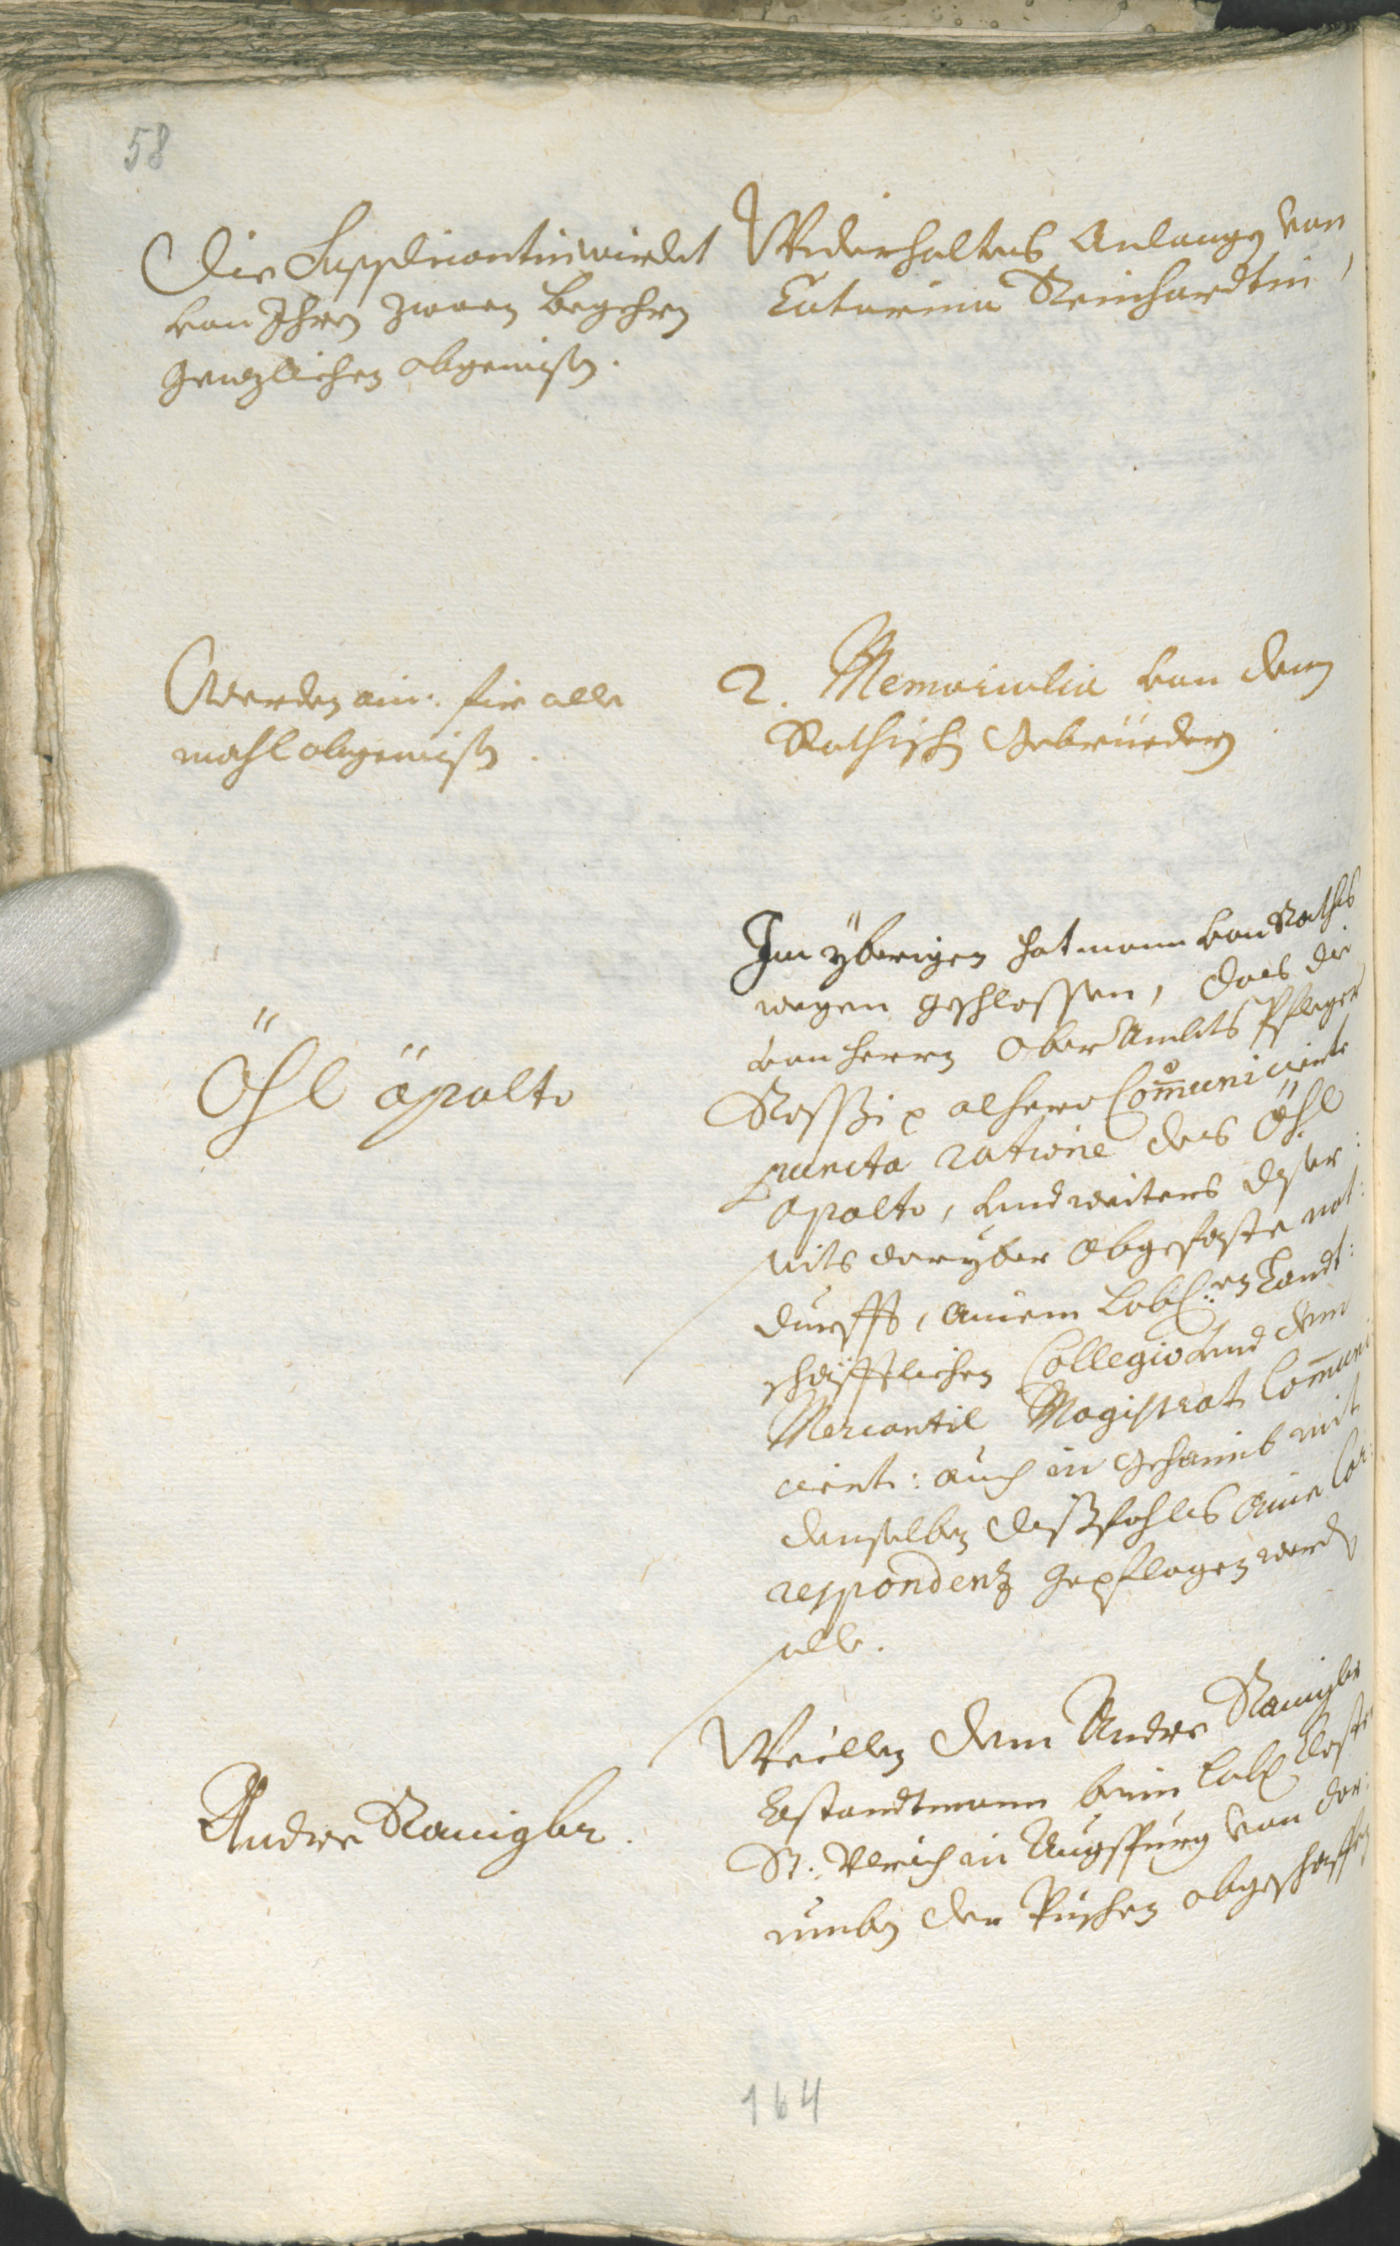 58
Die Supplicantin wirdet
von Ihren zwaren begehren
genzlichen abgewisen.
Widerholtes Anlangen von
Catarina Reinhardtin,
Werden ain: für alle
mahl abgewisen.
2. Memorialia von denen
Rothischen Gebrüedern
Öhl apalto
Im yberigen hat mann von Raths
wegen geschlossen, das die
von Herrn Ober Ambts Pfleger
Rossi p alhero Communicierte
puncta ratione des Öhl
Apalto, und weiters diser:
seits daryber abgefaste not:
durfft, ainem Lobl:en Landt:
schafftlichen Collegio und dem
Mercantil Magistrat Communi:
ciert: auch in gehaimb mit
denselben dissfahls aine Cor:
respondenz gepflogen werden
solle.
Andree Ramigler.
Weillen dem Andre Ramigler
Bstandtmann beim Lobl Closter
St. Ulrich in Augspurg von dar:
umben der Puschen abgeschaffen
164